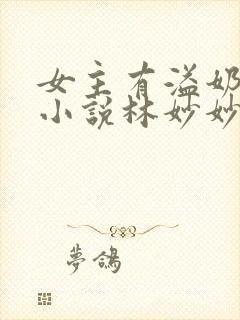 女主有溢奶
小說林妙妙
夢鴿